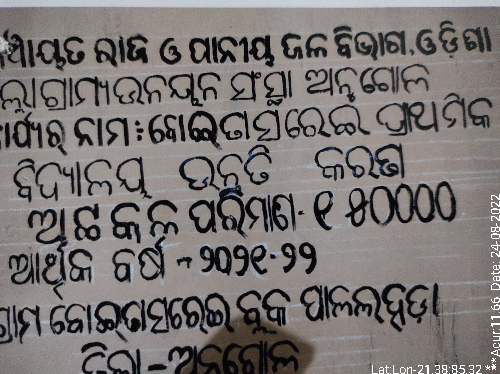 ପଞ୍ଚାୟତ ରାଜ ଓ ପାନୀୟ ଜଳ ବିଭାଗ, ଓଡ଼ିଶା
ଲ୍ଲା ଗ୍ରାମ୍ୟ ଉନ୍ନୟନ ସଂସ୍ଥା ଅନୁଗୋଳ
ନାମ : ବୋଇତାସରେଇ ପ୍ରାଥମିକ
ବିଦ୍ୟାଳୟ ଉନ୍ନତି କରଣ
ଅଟକଳ ପରିମାଣ - ୧୫୦୦୦୦
ଆର୍ଥିକ ବର୍ଷ - ୨୦୨୧-୨୨
ଗ୍ରାମ ବୋଇତାସରେଇ ବ୍ଲକ ପାଲଲହଡ଼ା
ଜିଲା - ଅନୁଗୋଳ
Lat Lon-21.38:85.32
***Acur.11.66, Date:24-08-2022